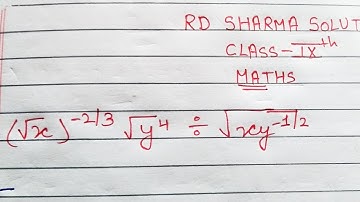 RD SHARMA SOLUT
CLASS-IXth
MATHS
(√x)^-2/3 √y^4 ÷ √xy^-1/2